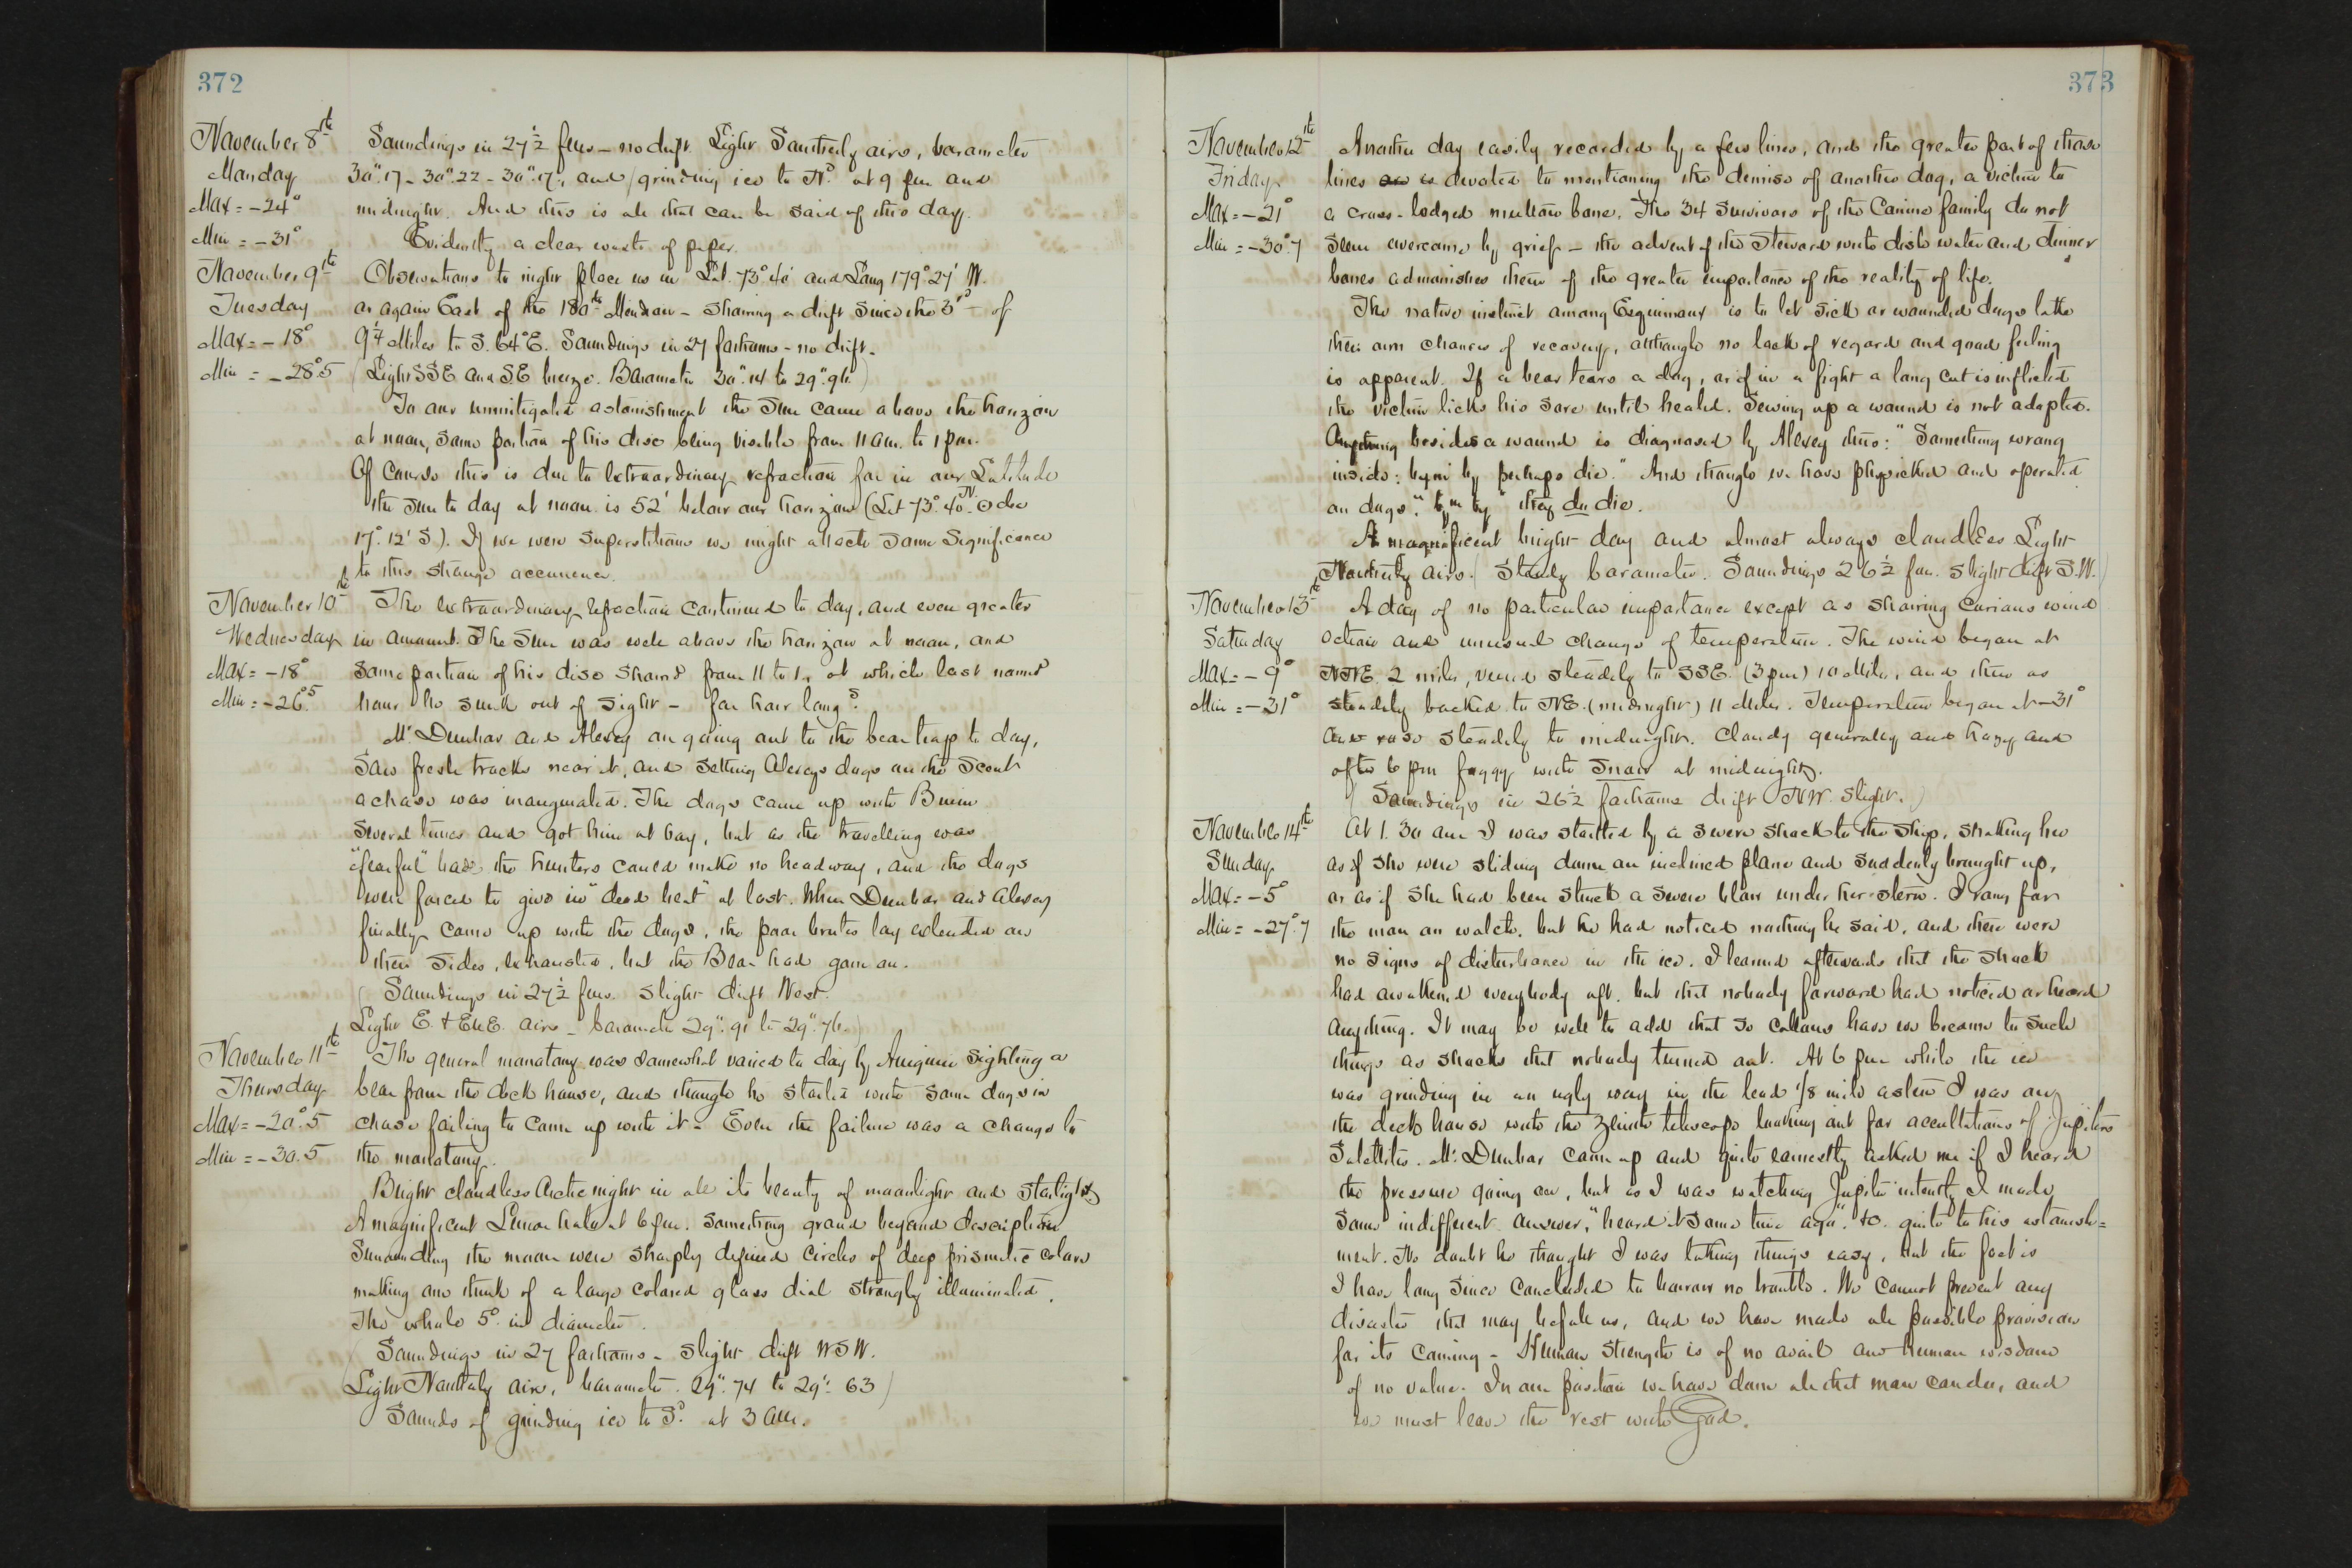 372
November 8th
Monday
Max = -24°
Min = -31°
Soundings in 27½ fms - no drift. Light Southerly airs, barometer
30".17 - 30".22 - 30".17, and grinding ice to Nd at 9 pm and
midnight. And this is all that can be said of this day.
Evidently a clear waste of paper.
November 9th
Tuesday
Max = -18°
Min = -28°.5
Observations to night place us in Lat. 73° 40' and Long 179° 27' W.
or again East of the 180th Meridian - Showing a drift since the 3rd of
9¼ Miles to S. 64° E. Soundings in 27 fathoms - no drift.
(Light SSE and SE breeze. Barometer 30".14 to 29".96)
To our unmitigated astonishment the Sun came above the horizon
at noon, some portion of his disc being visible from 11 am. to 1 pm.
Of course this is due to extraordinary refraction for in our Latitude
the Sun to day at noon is 52' below our horizon (Lat 73°.40' N. ⊙ dec
17°. 12' S). If we were superstitious we might attach some significance
to this strange occurrence.
November 10th
Wednesday
Max = -18°
Min = -26°.5
The extraordinary refraction continued to day, and even greater
in amount. The Sun was well above the horizon at noon, and
some portion of his disc showed from 11 to 1, at which last named
hour he sunk out of sight - for how long?
Mr. Dunbar and Alexey on going out to the bear trap to day,
saw fresh tracks near it, and setting Alexeys dogs on the scent
a chase was inaugurated. The dogs came up with Bruin
several times and got him at bay, but as the travelling was
"fearful" bad the hunters could make no headway, and the dogs
were forced to give in "dead beat" at last. When Dunbar and Alexey
finally came up with the dogs, the poor brutes lay extended on
their sides, exhausted, but the Bear had gone on.
(Soundings in 27½ fms. slight drift West.
Light E. & ENE. airs - barometer 29".91 to 29".76.)
November 11th
Thursday
Max = -20°.5
Min = -30.5
The general monotony was somewhat varied to day by Aneguin sighting a
bear from the deck house, and though he started with some dogs in
chase failing to come up with it - Even the failure was a change to
the monotony.
Bright cloudless Arctic night in all its beauty of moonlight and starlight
A magnificent Lunar halo at 6 pm. something grand beyond description
Surrounding the moon were sharply defined circles of deep prismatic colors
making one think of a large colored glass dial strongly illuminated.
The whole 5° in diameter.
(Soundings in 27 fathoms - slight drift WSW.
Light Northerly airs, barometer. 29".74 to 29".63)
Sounds of grinding ice to Sd at 3 am.
373
November 12th
Friday
Max = -21°
Min = -30°.7
Another day easily recorded by a few lines, and the greater part of those
lines is devoted to mentioning the demise of another dog, a victim to
a cross-lodged mutton bone. The 34 survivors of the Canine family do not
seem overcome by grief - the advent of the Steward with dish water and dinner
bones admonishes them of the greater importance of the reality of life.
The native instinct among Esquimaux is to let sick or wounded dogs take
their own chances of recovery, although no lack of regard and good feeling
is apparent. If a bear tears a dog, or if in a fight a long cut is inflicted
the victim licks his sore until healed. Sewing up a wound is not adopted.
Anything besides a wound is diagnosed by Alexey thus: "Something wrong
inside: bym by perhaps die." And though we have physicked and operated
on dogs, "bym by" they do die.
A magnificent bright day and almost always cloudless Light
Northerly airs. (Steady barometer. Soundings 26½ fms. slight drift S.W.)
November 13th
Saturday
Max = -9°
Min = -31°
A day of no particular importance except as showing curious wind
action and unusual change of temperature. The wind began at
NNE. 2 miles, veered steadily to SSE. (3 pm) 10 Miles, and then as
steadily backed to NE. (midnight) 11 Miles. Temperature began at -31°
and rose steadily to midnight. Cloudy generally and hazy and
after 6 pm foggy with snow at midnight.
(Soundings in 26½ fathoms drift NW. slight.)
November 14th
Sunday
Max = -5°
Min = -27°.7
At 1.30 am I was startled by a severe shock to the ship, shaking her
as if she were sliding down an inclined plane and suddenly brought up,
or as if she had been struck a severe blow under her stern. I rang for
the man on watch, but he had noticed nothing he said, and there were
no signs of disturbance in the ice. I learned afterwards that the shock
had awakened everybody aft, but that nobody forward had noticed or heard
anything. It may be well to add that so callous have we become to such
things as shocks that nobody turned out. At 6 pm while the ice
was grinding in an ugly way in the lead 1/8 mile astern I was on
the deck house with the zenith telescope looking out for occultations of Jupiters
Satellites. Mr. Dunbar came up and quite earnestly asked me if I heard
the pressure going on, but as I was watching Jupiter intently I made
some indifferent answer, "heard it some time ago". &c. quite to his astonish=
ment. No doubt he thought I was taking things easy, but the fact is
I have long since concluded to borrow no trouble. We cannot prevent any
disaster that may befall us, and we have made all possible provision
for its coming - Human strength is of no avail and human wisdom
of no value. In our position we have done all that man can do, and
we must leave the rest with God.